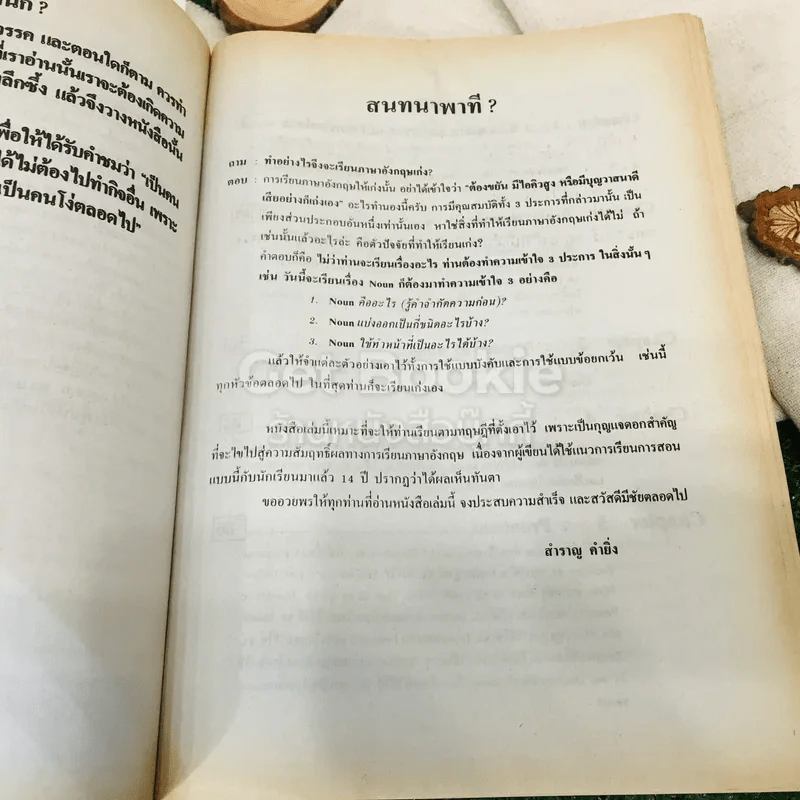 วรรค และตอนใดก็ตาม ควรทำ
ที่เราอ่านนั้นเราจะต้องเกิดความ
ลึกซึ้ง แล้วจึงวางหนังสือนั้น
เพื่อให้ได้รับคำชมว่า "เป็นคน
ได้ไม่ต้องไปทำกิจอื่น เพราะ
เป็นคนโง่ตลอดไป"
สนทนาพาที ?
ถาม : ทำอย่างไรจึงจะเรียนภาษาอังกฤษเก่ง?
ตอบ : การเรียนภาษาอังกฤษให้เก่งนั้น อย่าได้เข้าใจว่า "ต้องขยัน มีไอคิวสูง หรือมีบุญวาสนาดี
เสียอย่างก็เก่งเอง" อะไรทำนองนี้ครับ การมีคุณสมบัติทั้ง 3 ประการที่กล่าวมานั้น เป็น
เพียงส่วนประกอบอันหนึ่งเท่านั้นเอง หาใช่สิ่งที่ทำให้เรียนภาษาอังกฤษเก่งได้ไม่ ถ้า
เช่นนั้นแล้วอะไรล่ะ คือตัวปัจจัยที่ทำให้เรียนเก่ง?
คำตอบก็คือ ไม่ว่าท่านจะเรียนเรื่องอะไร ท่านต้องทำความเข้าใจ 3 ประการ ในสิ่งนั้น ๆ
เช่น วันนี้จะเรียนเรื่อง Noun ก็ต้องมาทำความเข้าใจ 3 อย่างคือ
1. Noun คืออะไร (รู้คำจำกัดความก่อน)?
2. Noun แบ่งออกเป็นกี่ชนิดอะไรบ้าง?
3. Noun ใช้ทำหน้าที่เป็นอะไรได้บ้าง?
แล้วให้จำแต่ละตัวอย่างเอาไว้ทั้งการใช้แบบบังคับและการใช้แบบข้อยกเว้น เช่นนี้
ทุกหัวข้อตลอดไป ในที่สุดท่านก็จะเรียนเก่งเอง
GetBookie
ร้านหนังสือบุ๊คกี้
หนังสือเล่มนี้เหมาะที่จะให้ท่านเรียนตามทฤษฎีที่ตั้งเอาไว้ เพราะเป็นกุญแจดอกสำคัญ
ที่จะไขไปสู่ความสัมฤทธิ์ผลทางการเรียนภาษาอังกฤษ เนื่องจากผู้เขียนได้ใช้แนวการเรียนการสอน
แบบนี้กับนักเรียนมาแล้ว 14 ปี ปรากฏว่าได้ผลเห็นทันตา
ขออวยพรให้ทุกท่านที่อ่านหนังสือเล่มนี้ จงประสบความสำเร็จ และสวัสดีมีชัยตลอดไป
สำราญ คำยิ่ง